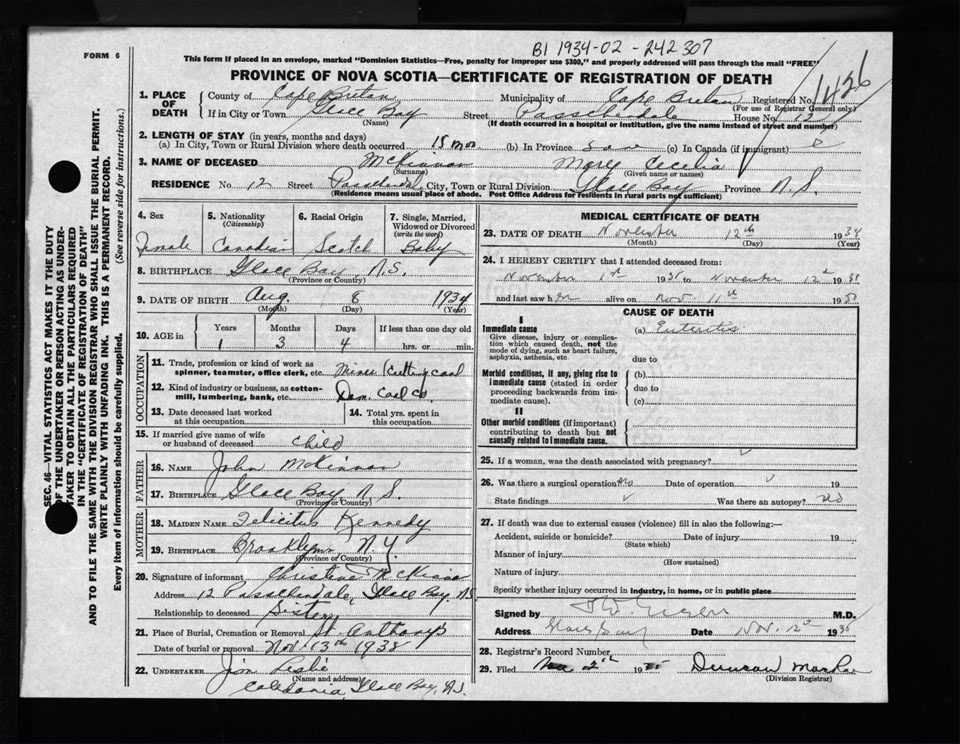 FORM 6
B1 1934-02-242307
This form if placed in an envelope, marked "Dominion Statistics—Free, penalty for improper use $300," and properly addressed will pass through the mail "FREE"
PROVINCE OF NOVA SCOTIA—CERTIFICATE OF REGISTRATION OF DEATH
1426
1. PLACE OF DEATH
County of Cape Breton Municipality of Cape Breton Registered No.
(For use of Registrar General only)
If in City or Town Glace Bay Street Passchendale House No. 12
(Name) (If death occurred in a hospital or institution, give the name instead of street and number)
2. LENGTH OF STAY (in years, months and days)
(a) In City, Town or Rural Division where death occurred 15 mon. (b) In Province Same (c) In Canada (if immigrant)
3. NAME OF DECEASED McKinnon Mary Cecelia
(Surname) (Given name or names)
RESIDENCE No. 12 Street Passchendale City, Town or Rural Division Glace Bay Province N.S.
(Residence means usual place of abode. Post Office Address for residents in rural parts not sufficient)
4. Sex 5. Nationality (Citizenship) 6. Racial Origin 7. Single, Married, Widowed or Divorced (write the word)
Female Canadian Scotch Baby
8. BIRTHPLACE Glace Bay, N.S.
(Province or Country)
9. DATE OF BIRTH Aug. 8 1934
(Month) (Day) (Year)
10. AGE in Years Months Days If less than one day old
1 3 4 hrs. or min.
OCCUPATION
11. Trade, profession or kind of work as spinner, teamster, office clerk, etc. Mines (Cutting coal
12. Kind of industry or business, as cotton-mill, lumbering, bank, etc. Dom. Coal Co
13. Date deceased last worked at this occupation
14. Total yrs. spent in this occupation
15. If married give name of wife or husband of deceased Child
FATHER
16. NAME John McKinnon
17. BIRTHPLACE Glace Bay, N.S.
(Province or Country)
MOTHER
18. MAIDEN NAME Felicitus Kennedy
19. BIRTHPLACE Brooklyn, N.Y.
(Province or Country)
20. Signature of informant Christine McKinnon
Address 12 Passchendale, Glace Bay, N.S.
Relationship to deceased Sister
21. Place of Burial, Cremation or Removal St. Anthonys
Date of burial or removal Nov. 13th 1938
22. UNDERTAKER Jim Leslie
(Name and address)
Caledonia, Glace Bay, N.S.
MEDICAL CERTIFICATE OF DEATH
23. DATE OF DEATH November 12th 1938
(Month) (Day) (Year)
24. I HEREBY CERTIFY that I attended deceased from:
November 1st 193 to November 12th 193
and last saw her alive on Nov. 11th 193
CAUSE OF DEATH
I
Immediate cause
Give disease, injury or complication which caused death, not the mode of dying, such as heart failure, asphyxia, asthenia, etc.
(a) Enteritis
due to
Morbid conditions, if any, giving rise to immediate cause (stated in order proceeding backwards from immediate cause).
(b)
due to
(c)
II
Other morbid conditions (if important) contributing to death but not causally related to immediate cause.
25. If a woman, was the death associated with pregnancy?
26. Was there a surgical operation? No Date of operation 19
State findings Was there an autopsy? No
27. If death was due to external causes (violence) fill in also the following:—
Accident, suicide or homicide? Date of injury 19
(State which)
Manner of injury
(How sustained)
Nature of injury
Specify whether injury occurred in industry, in home, or in public place
Signed by M.D.
Address Glace Bay Date Nov. 12th 19
28. Registrar's Record Number
29. Filed 19 Duncan
(Division Registrar)
SEC. 46—VITAL STATISTICS ACT MAKES IT THE DUTY OF THE UNDERTAKER OR PERSON ACTING AS UNDERTAKER TO OBTAIN ALL THE PARTICULARS REQUIRED IN THE "CERTIFICATE OF REGISTRATION OF DEATH"
AND TO FILE THE SAME WITH THE DIVISION REGISTRAR WHO SHALL ISSUE THE BURIAL PERMIT.
WRITE PLAINLY WITH UNFADING INK. THIS IS A PERMANENT RECORD.
Every item of information should be carefully supplied. (See reverse side for instructions.)